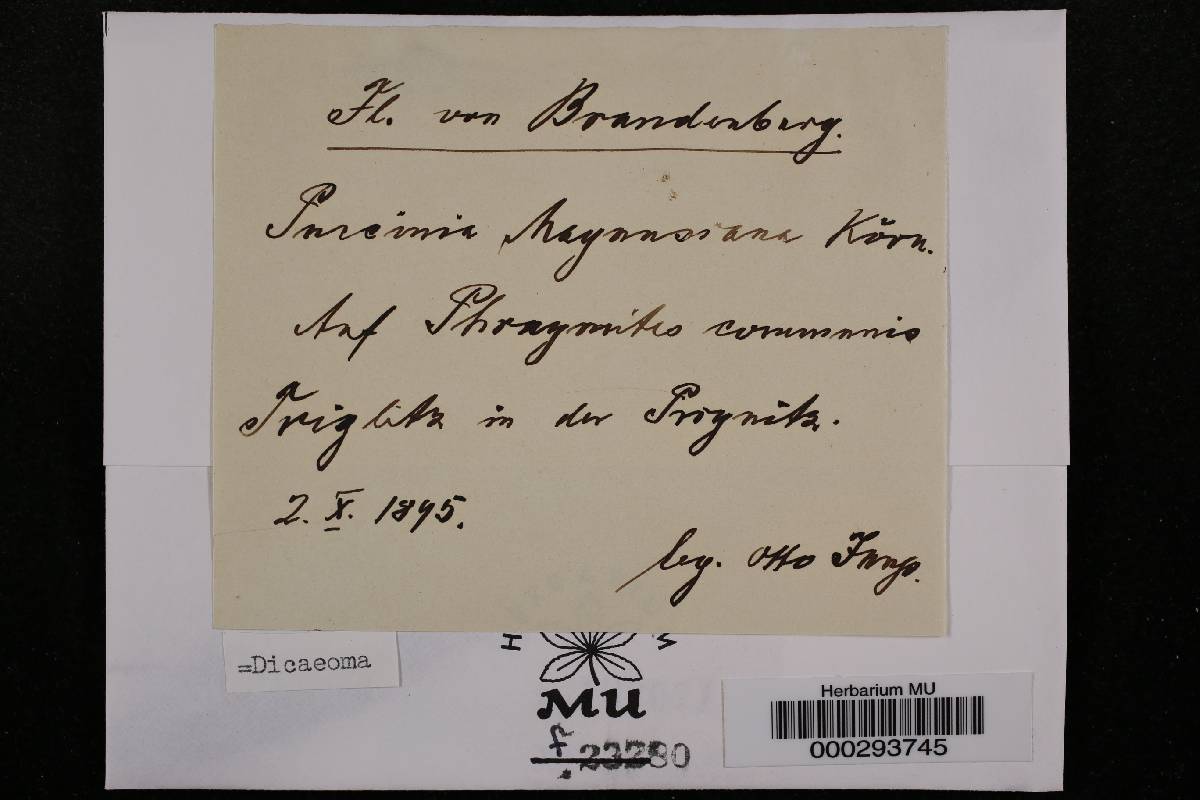 Fl. von Brandenburg.
Puccinia Magnusiana Körn.
Auf Phragmites communis
Triglitz in der Prignitz.
2. X. 1895.
leg. Otto Jaap.
=Dicaeoma
MU
f. 23280
Herbarium MU
000293745